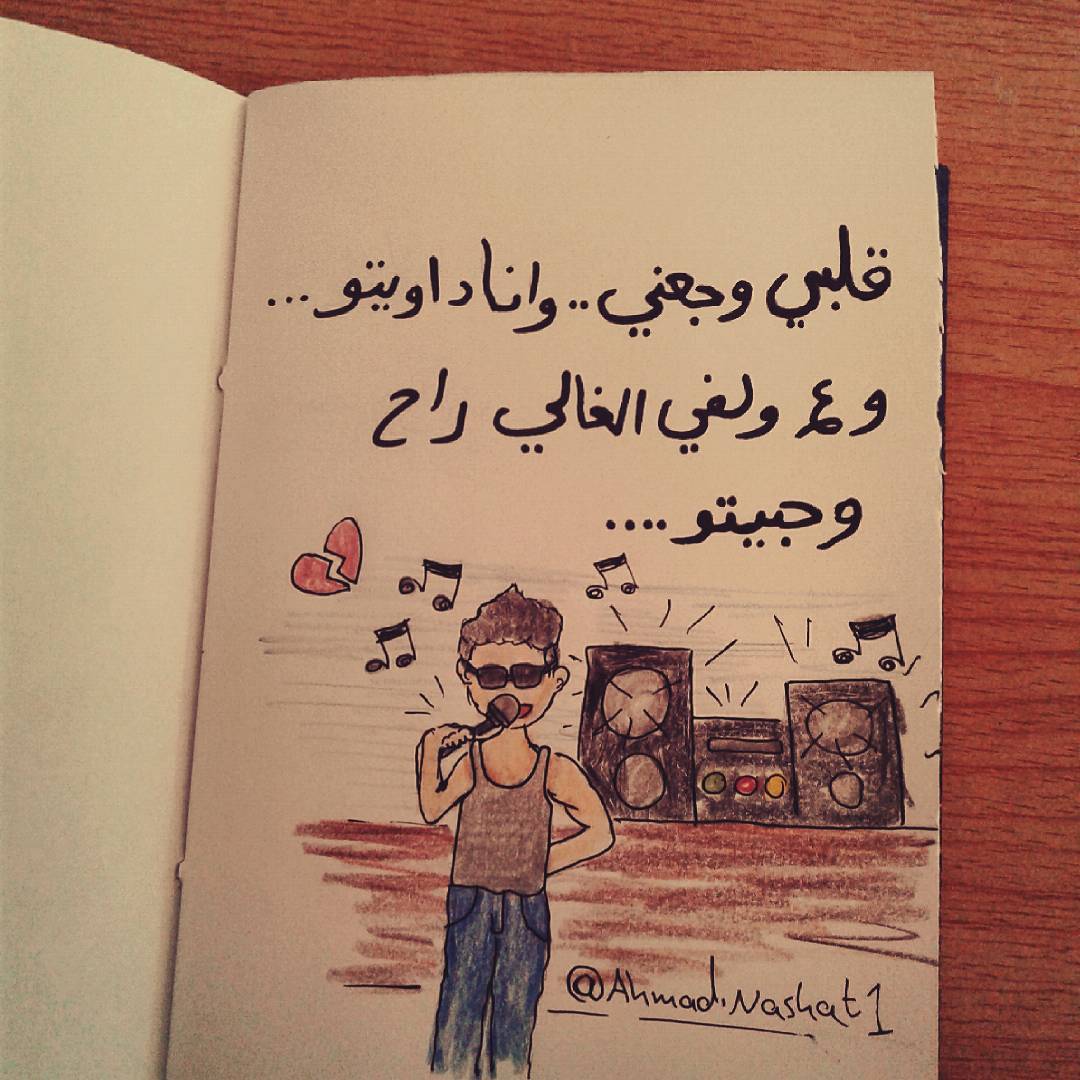 قلبي وجعني .. وانا داويتو ...
و عم ولفي الغالي راح
وجبيتو ....
@Ahmad.Nashat1